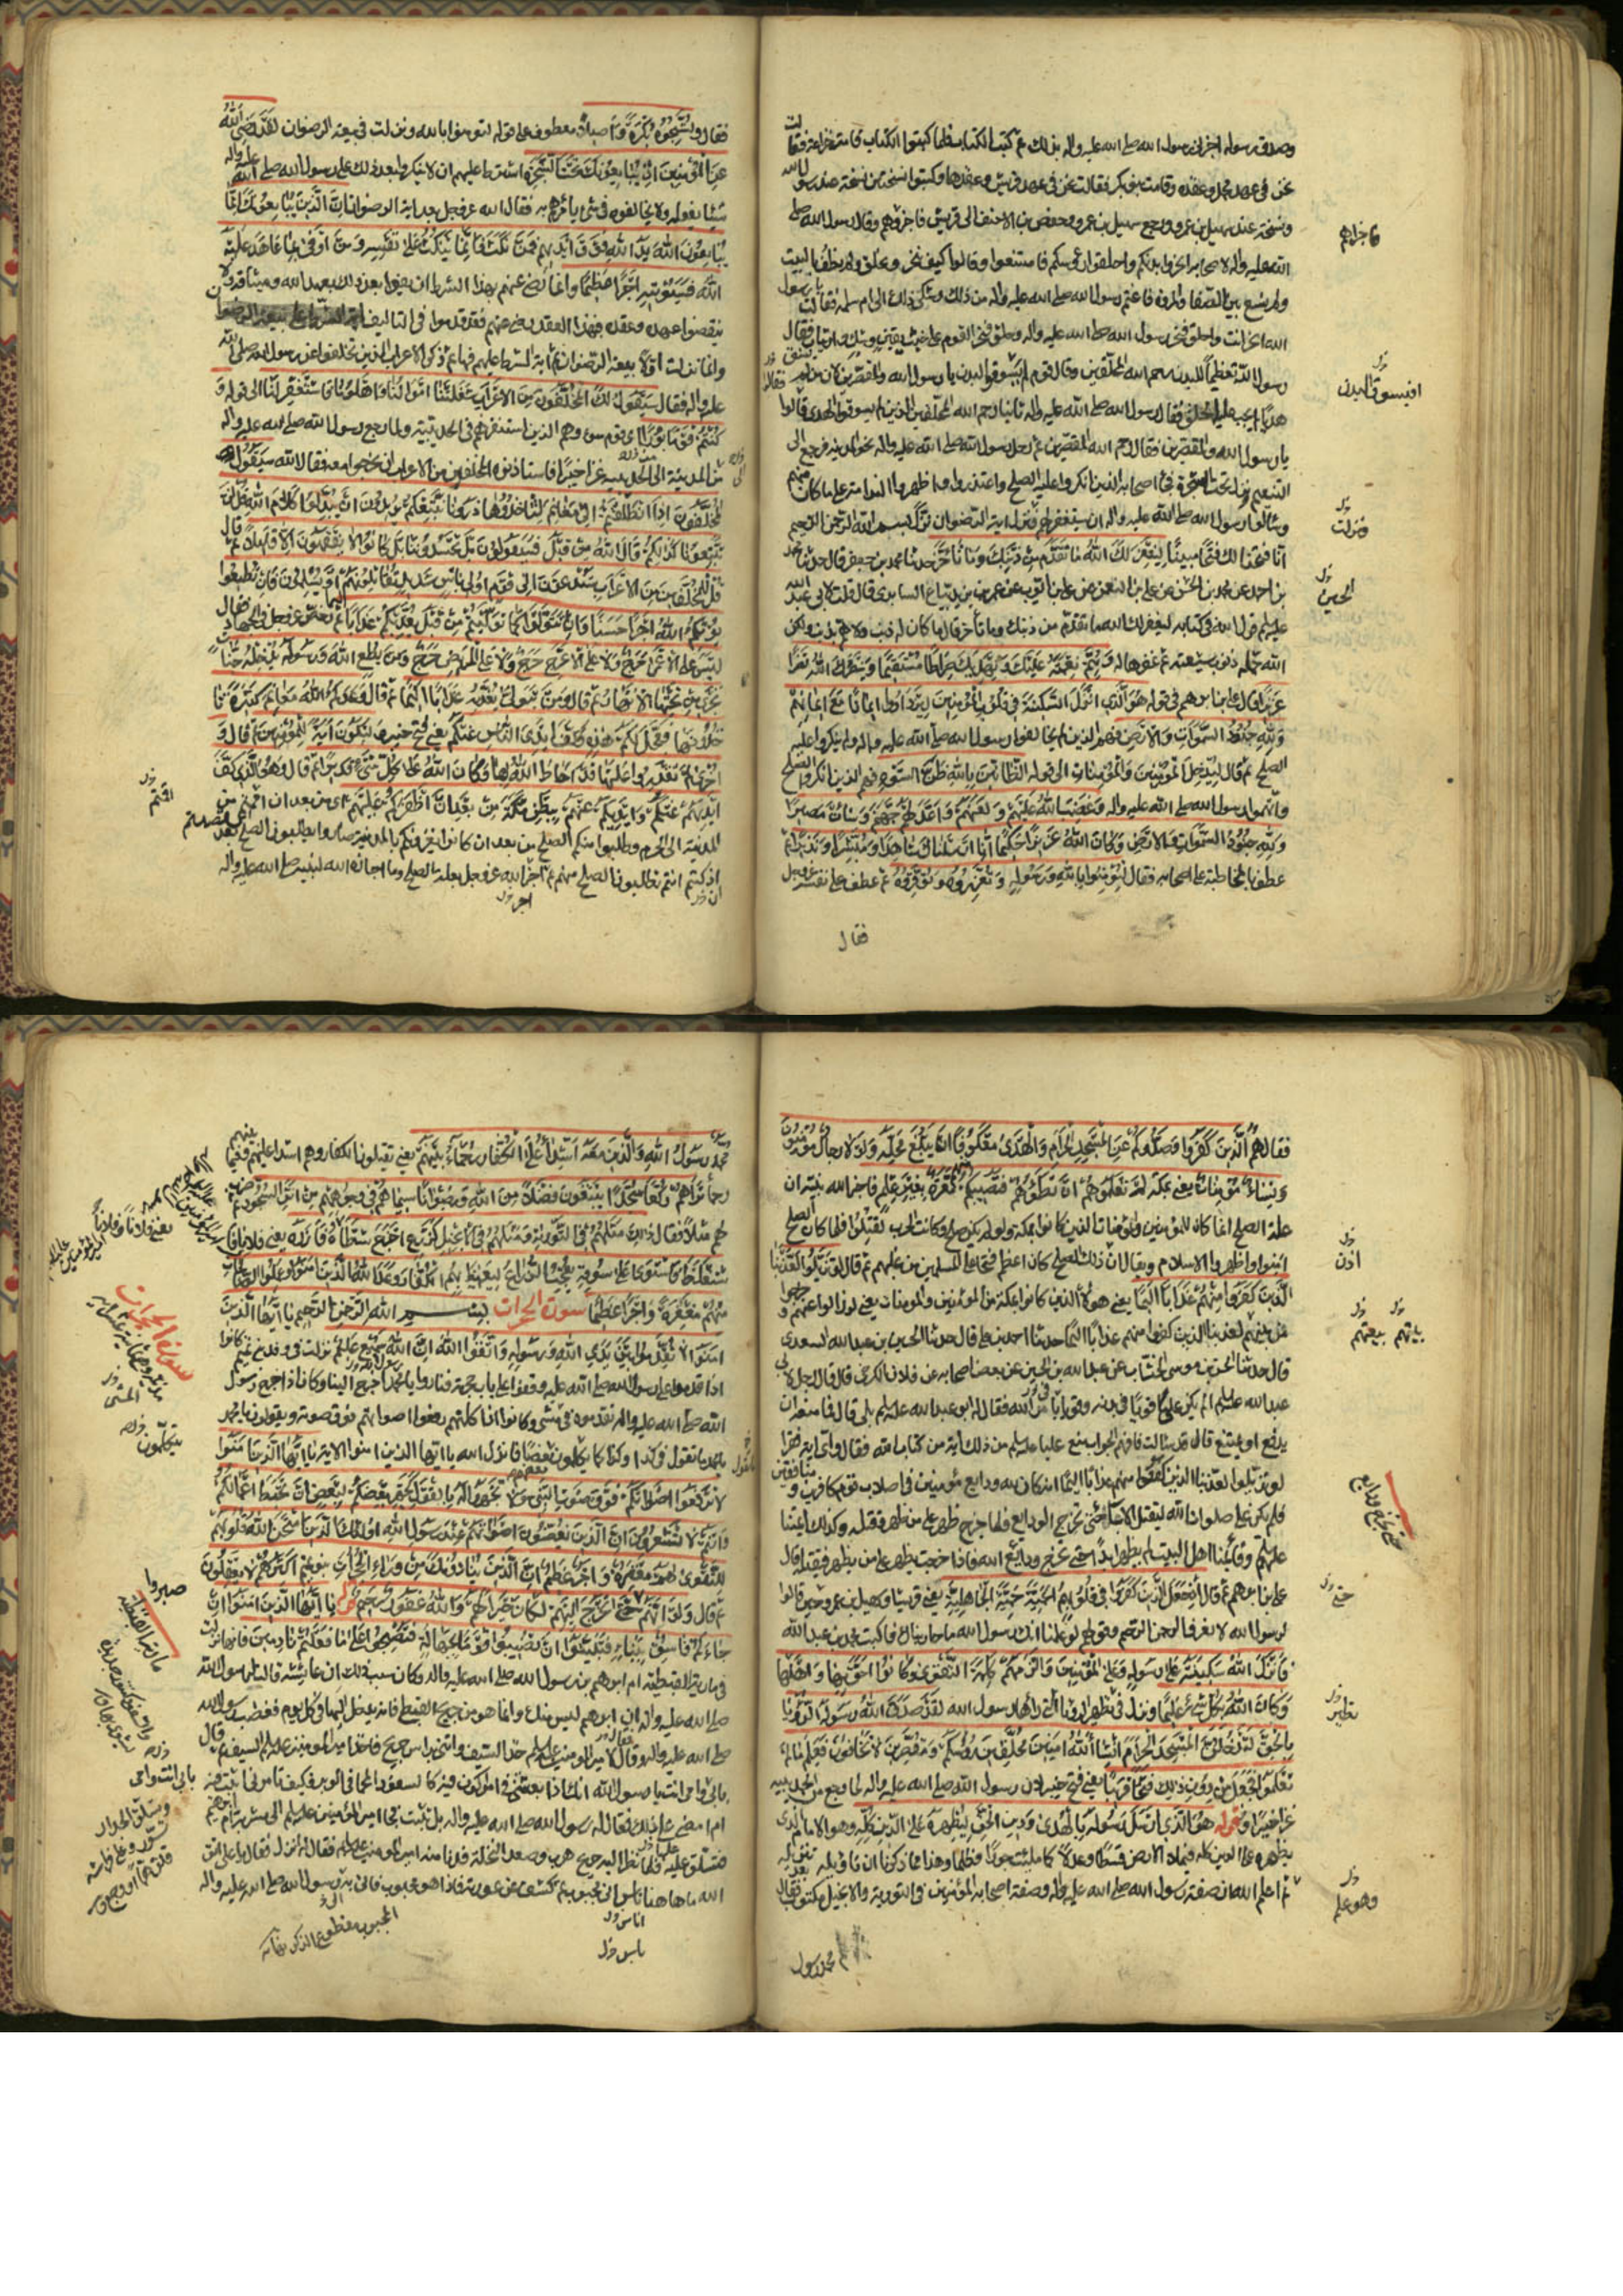 وصدق رسوله اجر ان رسول الله صلى الله عليه واله بذلك ثم كتب الكتاب فلما كتبوا الكتاب قامت خزاعة فقالت
نحن في عهد محمد وعقده وقامت بنو بكر فقالت نحن في عهد قريش وعقدها وكتبوا نسختين نسخة عند رسول الله
ونسخة عند سهيل بن عمرو ورجع سهيل بن عمرو وحفص بن الاحنف الى قريش فاخبروهم وقال رسول الله صلى
الله عليه واله لاصحابه انحروا بدنكم واحلقوا رؤسكم فامتنعوا وقالوا كيف ننحر ونحلق ولم نطف بالبيت
ولم نسع بين الصفا والمروة فاغتم رسول الله صلى الله عليه واله من ذلك وشكى ذلك الى ام سلمة فقالت يا رسول
الله انحر انت واحلق فنحر رسول الله صلى الله عليه واله وحلق فنحر القوم على خبث يقين وشك وارتياب فقال
رسول الله تعظيما للبدن رحم الله المحلقين وقال قوم لم يسوقوا البدن يا رسول الله والمقصرين لان من لم يسق
هديا لم يجب عليه الحلق فقال رسول الله صلى الله عليه واله ثانيا رحم الله المحلقين الذين لم يسوقوا الهدي قالوا
يا رسول الله والمقصرين فقال رحم الله المقصرين ثم رحل رسول الله صلى الله عليه واله نحو المدينة فرجع الى
التنعيم ونزل تحت الشجرة فجاء اصحابه الذين انكروا عليه الصلح واعتذروا واظهروا الندامة على ما كان منهم
وسألوا رسول الله صلى الله عليه واله ان يستغفر لهم فنزل اية الرضوان نزل بسم الله الرحمن الرحيم
انا فتحنا لك فتحا مبينا ليغفر لك الله ما تقدم من ذنبك وما تأخر حدثنا محمد بن جعفر قال حدثنا محمد
بن احمد عن محمد بن الحسين عن علي بن النعمن عن علي بن ايوب عن عمر بن يزيد بياع السابري قال قلت لابي عبد الله
عليه السلام قول الله في كتابه ليغفر لك الله ما تقدم من ذنبك وما تأخر قال ما كان له ذنب ولا هم بذنب ولكن
الله حمله ذنوب شيعته ثم غفرها له ويتم نعمته عليك ويهديك صراطا مستقيما وينصرك الله نصرا
عزيزا قال علي بن ابراهيم في قوله هو الذي انزل السكينة في قلوب المؤمنين ليزدادوا ايمانا مع ايمانهم
ولله جنود السموات والارض فهم الذين لم يخالفوا رسول الله صلى الله عليه واله ولم ينكروا عليه
الصلح ثم قال ليدخل المؤمنين والمؤمنات الى قوله الظانين بالله ظن السوء وهم الذين انكروا الصلح
واتهموا رسول الله صلى الله عليه واله وغضب الله عليهم ولعنهم واعد لهم جهنم وساءت مصيرا
ولله جنود السموات والارض وكان الله عزيزا حكيما انا ارسلناك شاهدا ومبشرا ونذيرا ثم
عطف بالمخاطبة على اصحابه فقال لتؤمنوا بالله ورسوله وتعزروه وتوقروه ثم عطف على نفسه عز وجل
فقال
فاخبراهم
افيسوق البدن
فنزلت
الحسين
فقال وتسبحوه بكرة واصيلا معطوف على قوله لتؤمنوا بالله ونزلت في بيعة الرضوان لقد رضي الله
عن المؤمنين اذ يبايعونك تحت الشجرة اشترط عليهم ان لا ينكروا بعد ذلك على رسول الله صلى الله عليه واله
شيئا يفعله ولا يخالفوه في شيء يأمرهم به فقال الله عز وجل بعد اية الرضوان ان الذين يبايعونك انما
يبايعون الله يد الله فوق ايديهم فمن نكث فانما ينكث على نفسه ومن اوفى بما عاهد عليه
الله فسيؤتيه اجرا عظيما وانما رضي عنهم بهذا الشرط ان يفوا بعد ذلك بعهد الله وميثاقه ولا
ينقضوا عهده وعقده فبهذا العقد رضي عنهم فقد قدموا في التاليف اية الشرط على بيعة الرضوان
وانما نزلت اولا بيعة الرضوان ثم اية الشرط عليهم فيها ثم ذكر الاعراب الذين تخلفوا عن رسول الله صلى الله
عليه واله فقال سيقول لك المخلفون من الاعراب شغلتنا اموالنا واهلونا فاستغفر لنا الى قوله و
كنتم قوما بورا اي قوم سوء وهم الذين استنفرهم في الحديبية ولما رجع رسول الله صلى الله عليه واله
الى المدينة من الحديبية غزا خيبرا فاستاذنوه المخلفون من الاعراب ان يخرجوا معه فقال الله سيقول
المخلفون اذا انطلقتم الى مغانم لتاخذوها ذرونا نتبعكم يريدون ان يبدلوا كلام الله قل لن
تتبعونا كذلكم قال الله من قبل فسيقولون بل تحسدوننا بل كانوا لا يفقهون الا قليلا ثم قال
قل للمخلفين من الاعراب ستدعون الى قوم اولى باس شديد تقاتلونهم او يسلمون فان تطيعوا
يؤتكم الله اجرا حسنا وان تتولوا كما توليتم من قبل يعذبكم عذابا اليما ثم رخص عز وجل في الجهاد فقال
ليس على الاعمى حرج ولا على الاعرج حرج ولا على المريض حرج ومن يطع الله ورسوله يدخله جنات
تجري من تحتها الانهار ثم قال ومن يتول يعذبه عذابا اليما ثم قال وعدكم الله مغانم كثيرة تا
خذونها فعجل لكم هذه وكف ايدي الناس عنكم يعني فتح خيبر ولتكون اية للمؤمنين ثم قال و
اخرى لم تقدروا عليها قد احاط الله بها وكان الله على كل شيء قديرا ثم قال وهو الذي كف
ايديهم عنكم وايديكم عنهم ببطن مكة من بعد ان اظفركم عليهم اي من بعد ان اممتم من
المدينة الى الحرم وطلبوا منكم الصلح من بعد ان كانوا يغزونكم بالمدينة صاروا يطلبون الصلح بعد
اذ كنتم انتم تطلبون الصلح منهم ثم اخبر الله عز وجل بعلة الصلح وما اجازه الله لنبيه صلى الله عليه واله
فقال هم الذين كفروا وصدوكم عن المسجد الحرام والهدي معكوفا ان يبلغ محله ولولا رجال مؤمنون
ونساء مؤمنات يعني بمكة لم تعلموهم ان تطؤهم فتصيبكم منهم معرة بغير علم فاخبر الله نبيه ان
علة الصلح انما كان للمؤمنين والمؤمنات الذين كانوا بمكة ولو لم يكن صلح وكانت الحرب لقتلوا فلما كان الصلح
امنوا واظهروا الاسلام ويقال ان ذلك الصلح كان اعظم فتحا على المسلمين من غلبهم ثم قال لو تزيلوا لعذبنا
الذين كفروا منهم عذابا اليما يعني هؤلاء الذين كانوا بمكة من المؤمنين والمؤمنات يعني لو زالوا عنهم وخرجوا
من بينهم لعذبنا الذين كفروا منهم عذابا اليما حدثنا احمد بن علي قال حدثنا الحسين بن عبد الله السعدي
قال حدثنا الحسن بن موسى الخشاب عن عبد الله بن الحسين عن بعض اصحابه عن فلان الكرخي قال قال رجل لابي
عبد الله عليه السلام الم يكن علي قويا في بدنه قويا في امر الله فقال له ابو عبد الله عليه السلام بلى قال فما منعه ان
يدفع او يمتنع قال قد سألت فافهم الجواب منع عليا عليه السلام من ذلك اية من كتاب الله فقال واي اية فقرأ
لو تزيلوا لعذبنا الذين كفروا منهم عذابا اليما انه كان لله ودايع مؤمنين في اصلاب قوم كافرين ومنافقين
فلم يكن علي صلوات الله ليقتل الاباء حتى تخرج الودايع فلما خرج ظهر على من ظهر وقتله وكذلك قائمنا
اهل البيت لم يظهر ابدا حتى تخرج ودايع الله فاذا خرجت يظهر على من يظهر فيقتله قال
علي بن ابراهيم ثم قال اذ جعل الذين كفروا في قلوبهم الحمية حمية الجاهلية يعني قريشا وسهيل بن عمرو حين قالوا
لرسول الله لا نعرف الرحمن الرحيم وقولهم لو علمنا انك رسول الله ما حاربناك فاكتب محمد بن عبد الله
فانزل الله سكينته على رسوله وعلى المؤمنين والزمهم كلمة التقوى وكانوا احق بها واهلها
وكان الله بكل شيء عليما ونزل في تطهير الرؤيا التي رآها رسول الله لقد صدق الله رسوله الرؤيا
بالحق لتدخلن المسجد الحرام انشا الله امنين محلقين رؤسكم ومقصرين لا تخافون فعلم ما لم
تعلموا فجعل من دون ذلك فتحا قريبا يعني فتح خيبر لان رسول الله صلى الله عليه واله لما رجع من الحديبية
غزا خيبرا وقوله هو الذي ارسل رسوله بالهدى ودين الحق ليظهره على الدين كله وهو الامام الذي
يظهره على الدين كله فيملاء الارض قسطا وعدلا كما ملئت جورا وظلما وهذا مما ذكرنا ان تاويله بعد تنزيله
ثم اعلم الله ان صفة رسول الله صلى الله عليه واله وصفة اصحابه المؤمنين في التورية والانجيل مكتوب فقال
محمد رسول
اذن
حتى
تطهير
وهو علم
محمد رسول الله والذين معه اشداء على الكفار رحماء بينهم يعني يقتلون الكفار وهم اشداء عليهم وفيما بينهم
رحماء تراهم ركعا سجدا يبتغون فضلا من الله ورضوانا سيماهم في وجوههم من اثر السجود ثم ضرب
لهم مثلا فقال ذلك مثلهم في التورية ومثلهم في الانجيل كزرع اخرج شطأه فآزره يعني فلانا فا
ستغلظ فاستوى على سوقه يعجب الزراع ليغيظ بهم الكفار وعد الله الذين امنوا وعملوا الصالحات
منهم مغفرة واجرا عظيما سورة الحجرات بسم الله الرحمن الرحيم يا ايها الذين
امنوا لا تقدموا بين يدي الله ورسوله واتقوا الله ان الله سميع عليم نزلت في وفد بني تميم كانوا
اذا قدموا على رسول الله صلى الله عليه وقفوا على باب حجرته فنادوا يا محمد اخرج الينا وكانوا اذا خرج رسول
الله صلى الله عليه واله تقدموه في المشي وكانوا اذا كلمهم رفعوا اصواتهم فوق صوته ويقولون يا محمد
يا محمد ما تقول في كذا وكذا كما يكلمون بعضهم بعضا فانزل الله يا ايها الذين امنوا الاية يا ايها الذين امنوا
لا ترفعوا اصواتكم فوق صوت النبي ولا تجهروا له بالقول كجهر بعضكم لبعض ان تحبط اعمالكم
وانتم لا تشعرون ان الذين يغضون اصواتهم عند رسول الله اولئك الذين امتحن الله قلوبهم
للتقوى لهم مغفرة واجر عظيم ان الذين ينادونك من وراء الحجرات بنو تميم اكثرهم لا يعقلون
ثم قال ولو انهم صبروا حتى تخرج اليهم لكان خيرا لهم والله غفور رحيم يا ايها الذين امنوا ان
جاءكم فاسق بنباء فتبينوا ان تصيبوا قوما بجهالة فتصبحوا على ما فعلتم نادمين فانها نزلت
في مارية القبطية ام ابرهيم بن رسول الله صلى الله عليه واله وكان سبب ذلك ان عايشة قالت لرسول الله
صلى الله عليه واله ان ابرهيم ليس منك وانما هو من جريح القبطي فانه يدخل اليها في كل يوم فغضب رسول الله
صلى الله عليه واله وقال لامير المؤمنين عليه السلام خذ السيف وائتني براس جريح فاخذ امير المؤمنين عليه السلام السيف ثم قال
بابي وامي انت يا رسول الله انك اذا بعثتني في امر اكون فيه كالسفود المحما في الوبر فكيف تامرني اثبت فيه
ام امضي على ذلك فقال له رسول الله صلى الله عليه واله بل تثبت فجاء امير المؤمنين عليه السلام الى مشربة ام ابرهيم
فتسلق عليه فلما نظر اليه جريح هرب وصعد النخلة فدنا منه امير المؤمنين عليه السلام فقال له انزل فقال يا علي اتق
الله ما هاهنا باس اني مجبوب ثم كشف عن عورته فاذا هو مجبوب فاتى به رسول الله صلى الله عليه واله
سورة الحجرات
يتكلمون
صبروا
بابي انت وامي
المجبوب مقطوع الذكر